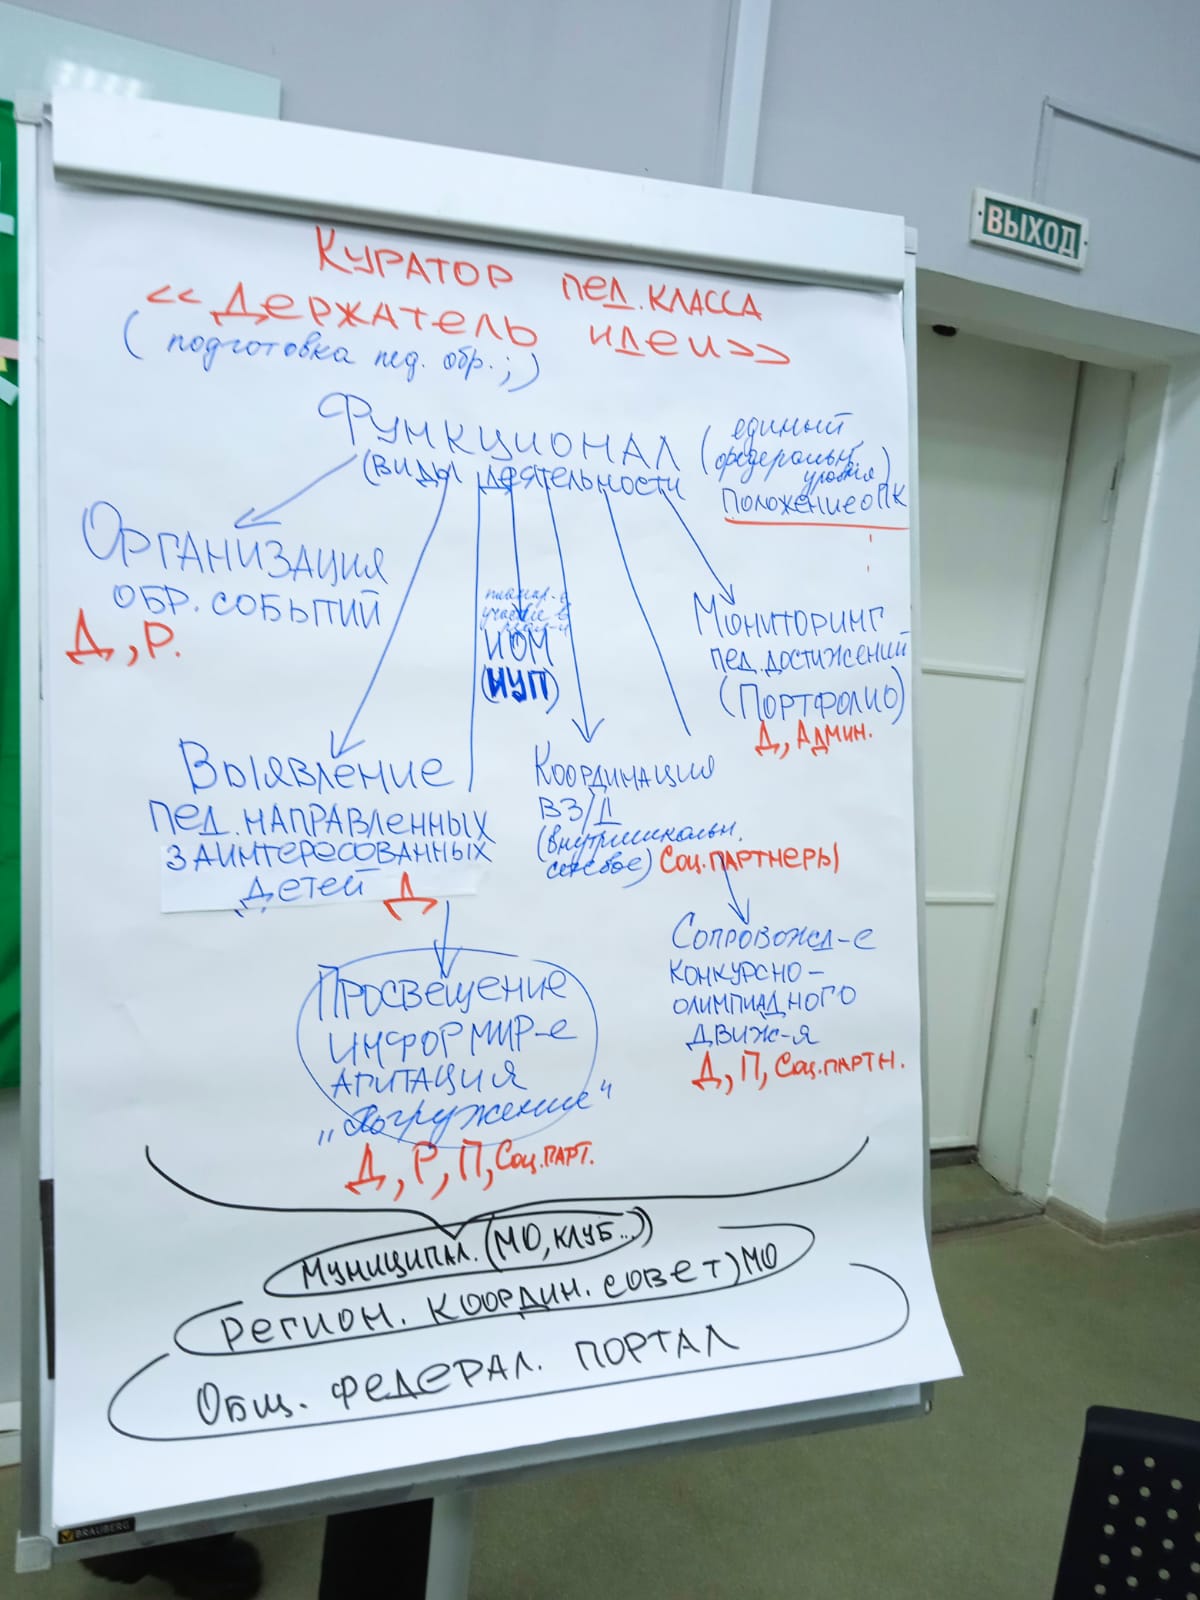 КУРАТОР ПЕД. КЛАССА
<<ДЕРЖАТЕЛЬ ИДЕИ>>
(подготовка пед. обр.;)
ФУНКЦИОНАЛ
(ВИДЫ ДЕЯТЕЛЬНОСТИ
(единый
уровня
ПОЛОЖЕНИЕ О ПК
ОРГАНИЗАЦИЯ
ОБР. СОБЫТИЙ
Д, Р.
участие в
ИОМ
(ИУП)
МОНИТОРИНГ
ПЕД. ДОСТИЖЕНИЙ
(ПОРТФОЛИО)
Д, АДМИН.
ВЫЯВЛЕНИЕ
ПЕД. НАПРАВЛЕННЫХ
ЗАИНТЕРЕСОВАННЫХ
ДЕТЕЙ Д
КООРДИНАЦИЯ
ВЗ/Д
(внутришкольн.
сетевое) СОЦ. ПАРТНЕРЫ
СОПРОВОЖД-Е
КОНКУРСНО-
ОЛИМПИАДНОГО
ДВИЖ-Я
Д, П, СОЦ. ПАРТН.
ПРОСВЕЩЕНИЕ
ИНФОРМИР-Е
АГИТАЦИЯ
„Погружение"
Д, Р, П, СОЦ. ПАРТ.
МУНИЦИПАЛ. (МО, КЛУБ...)
РЕГИОН. КООРДИН. СОВЕТ) МО
ОБЩ. ФЕДЕРАЛ. ПОРТАЛ
ВЫХОД
BRAUBERG